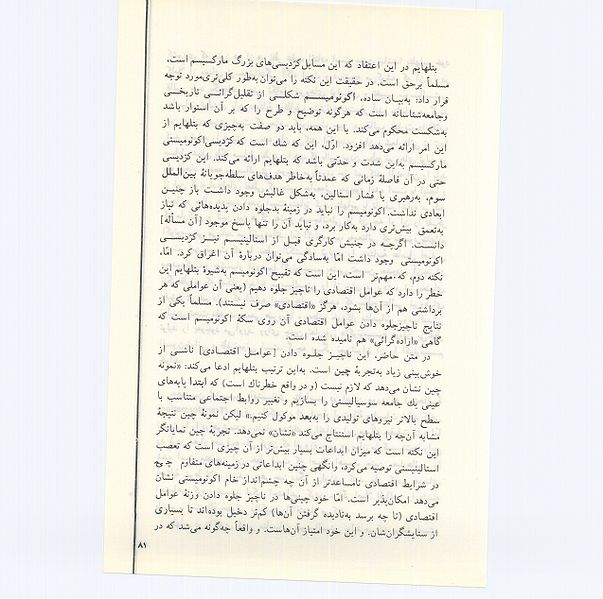 بتلهایم در این اعتقاد که این مسایل کژدیسی‌های بزرگ مارکسیسم است،
مسلماً برحق است. در حقیقت این نکته را می‌توان به‌طور کلی‌تری مورد توجه
قرار داد: به‌بیان ساده، اکونومیسم شکلی از تقلیل‌گرائی تاریخی
وجامعه‌شناسانه است که هرگونه توضیح و طرح را که بر آن استوار باشد
به‌شکست محکوم می‌کند. با این همه، باید دو صفت به‌چیزی که بتلهایم از
این امر ارائه می‌دهد افزود. اوّل، این که شك است که کژدیسی اکونومیستی
مارکسیسم به‌این شدت و حدّتی باشد که بتلهایم ارائه می‌کند. این کژدیسی
حتی در آن فاصلهٔ زمانی که عمدتاً به‌خاطر هدف‌های سلطه‌جویانهٔ بین‌الملل
سوم، به‌رهبری یا فشار استالین، به‌شکل غالبش وجود داشت باز چنین
ابعادی نداشت. اکونومیسم را نباید در زمینهٔ بدجلوه دادن پدیده‌هائی که نیاز
به‌تعمق بیش‌تری دارد به‌کار برد، و نباید آن را تنها پاسخ موجود [آن مسأله]
دانست. اگرچه در جنبش کارگری قبل از استالینیسم نیز کژدیسی
اکونومیستی وجود داشت امّا به‌سادگی می‌توان دربارهٔ آن اغراق کرد. امّا،
نکته دوم، که مهم‌تر است، این است که تقبیح اکونومیسم به‌شیوهٔ بتلهایم این
خطر را دارد که عوامل اقتصادی را ناچیز جلوه دهیم (یعنی آن عواملی که هر
برداشتی هم از آن‌ها بشود، هرگز «اقتصادی» صرف نیستند). مسلماً یکی از
نتایج ناچیزجلوه دادن عوامل اقتصادی آن روی سکهٔ اکونومیسم است که
گاهی «اراده‌گرائی» هم نامیده شده است.
در متن حاضر، این ناچیز جلوه دادن [عوامل اقتصادی] ناشی از
خوش‌بینی زیاد به‌تجربهٔ چین است. به‌این ترتیب بتلهایم ادعا می‌کند: «نمونه
چین نشان می‌دهد که لازم نیست (و در واقع خطرناك است) که ابتدا پایه‌های
عینی یك جامعه سوسیالیستی را بسازیم و تغییر روابط اجتماعی متناسب با
سطح بالاتر نیروهای تولیدی را به‌بعد موکول کنیم.» لیکن نمونهٔ چین نتیجهٔ
مشابه آن‌چه را بتلهایم استنتاج می‌کند «نشان» نمی‌دهد. تجربهٔ چین نمایانگر
این نکته است که میزان ابداعات بسیار بیش‌تر از آن چیزی است که تعصب
استالینیستی توصیه می‌کرد، وانگهی چنین ابداعاتی در زمینه‌های متفاوم
در شرایط اقتصادی نامساعدتر از آن چه چشم‌انداز خام اکونومیستی نشان
می‌دهد امکان‌پذیر است. امّا خود چینی‌ها در ناچیز جلوه دادن وزنهٔ عوامل
اقتصادی (تا چه برسد به‌نادیده گرفتن آن‌ها) کم‌تر دخیل بوده‌اند تا بسیاری
از ستایشگران‌شان. و این خود امتیاز آن‌هاست. و واقعاً چه‌گونه می‌شد که در
۸۱